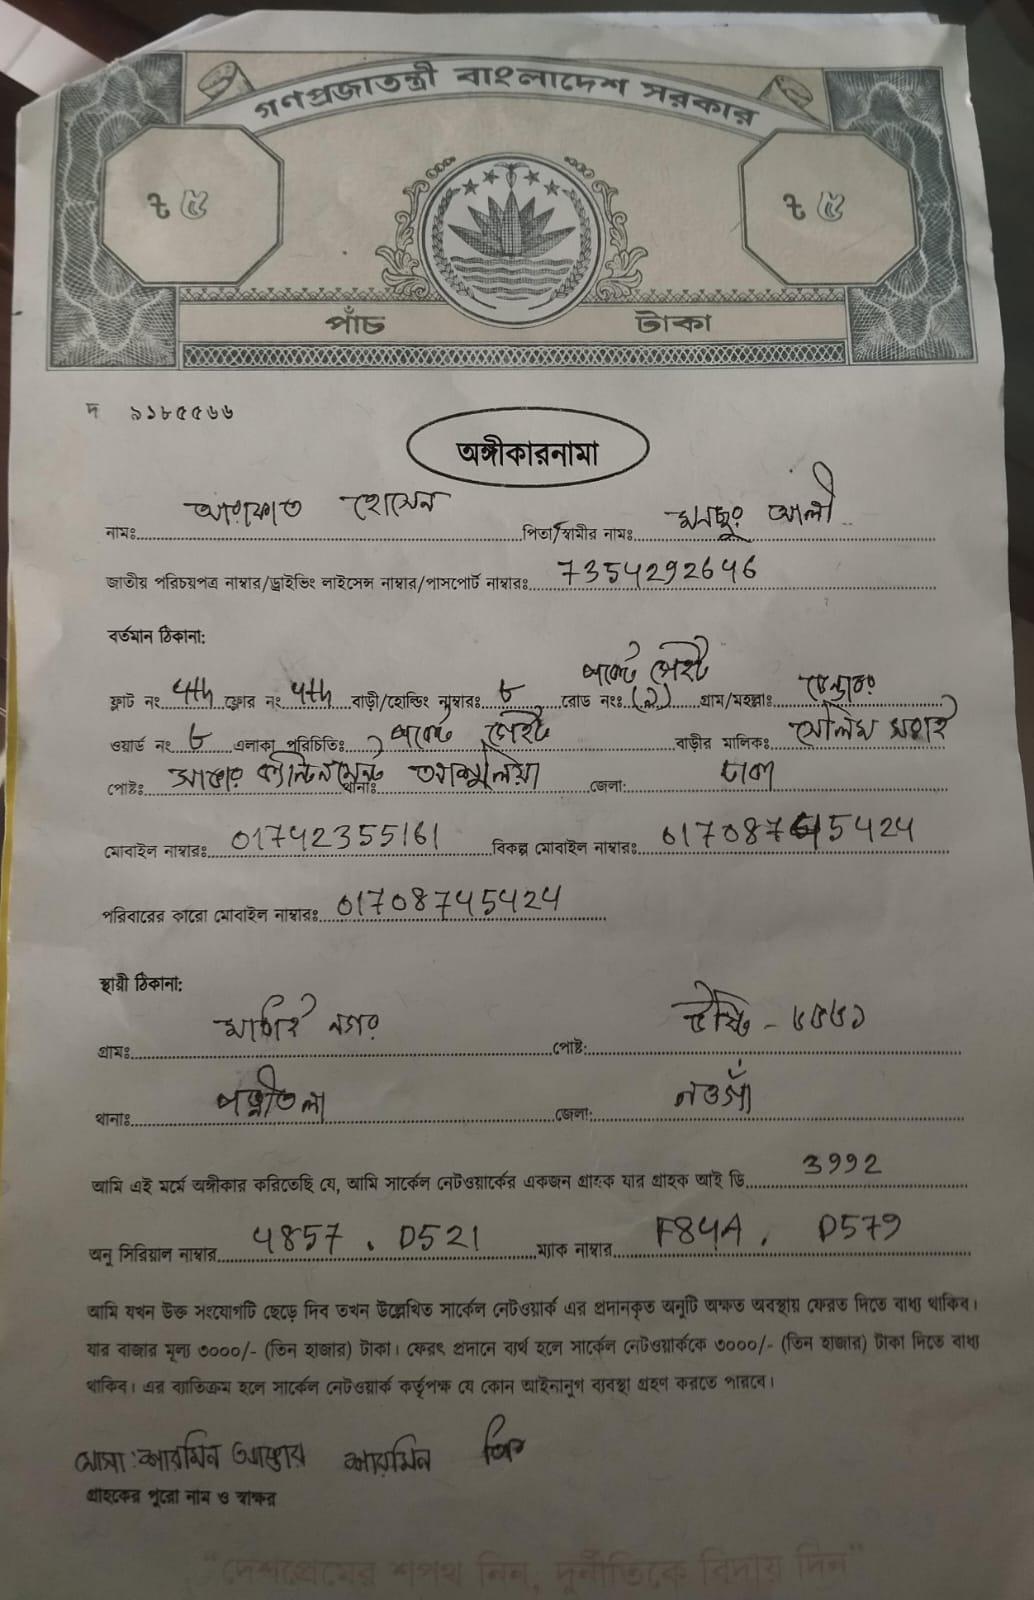 গণপ্রজাতন্ত্রী বাংলাদেশ সরকার
৳ ৫ ৳ ৫
পাঁচ টাকা
দ ৯১৮৫৫৬৬
অঙ্গীকারনামা
নামঃ আরফাত হোসেন পিতা/স্বামীর নামঃ মনছুর আলী
জাতীয় পরিচয়পত্র নাম্বার/ড্রাইভিং লাইসেন্স নাম্বার/পাসপোর্ট নাম্বারঃ 7354292646
বর্তমান ঠিকানা:
ফ্লাট নং 4th ফ্লোর নং 4th বাড়ী/হোল্ডিং নাম্বারঃ ৮ রোড নংঃ পকেট গেইট গ্রাম/মহল্লাঃ
ওয়ার্ড নং ৮ এলাকা পরিচিতিঃ পকেট গেইট বাড়ীর মালিকঃ সেলিম
পোষ্টঃ সাভার ক্যান্টনমেন্ট থানাঃ আশুলিয়া জেলা: ঢাকা
মোবাইল নাম্বারঃ 01742355161 বিকল্প মোবাইল নাম্বারঃ
পরিবারের কারো মোবাইল নাম্বারঃ 01708745424
স্থায়ী ঠিকানা:
গ্রামঃ নগর পোষ্ট:
থানাঃ পত্নীতলা জেলা: নওগাঁ
আমি এই মর্মে অঙ্গীকার করিতেছি যে, আমি সার্কেল নেটওয়ার্কের একজন গ্রাহক যার গ্রাহক আই ডি 3992
অনু সিরিয়াল নাম্বার 4857 . D521 ম্যাক নাম্বার F84A . D579
আমি যখন উক্ত সংযোগটি ছেড়ে দিব তখন উল্লেখিত সার্কেল নেটওয়ার্ক এর প্রদানকৃত অনুটি অক্ষত অবস্থায় ফেরত দিতে বাধ্য থাকিব।
যার বাজার মূল্য ৩০০০/- (তিন হাজার) টাকা। ফেরৎ প্রদানে ব্যর্থ হলে সার্কেল নেটওয়ার্ককে ৩০০০/- (তিন হাজার) টাকা দিতে বাধ্য
থাকিব। এর ব্যতিক্রম হলে সার্কেল নেটওয়ার্ক কর্তৃপক্ষ যে কোন আইনানুগ ব্যবস্থা গ্রহণ করতে পারবে।
মোসা: শারমিন আক্তার শারমিন
গ্রাহকের পুরো নাম ও স্বাক্ষর
"দেশপ্রেমের শপথ নিন, দুর্নীতিকে বিদায় দিন"